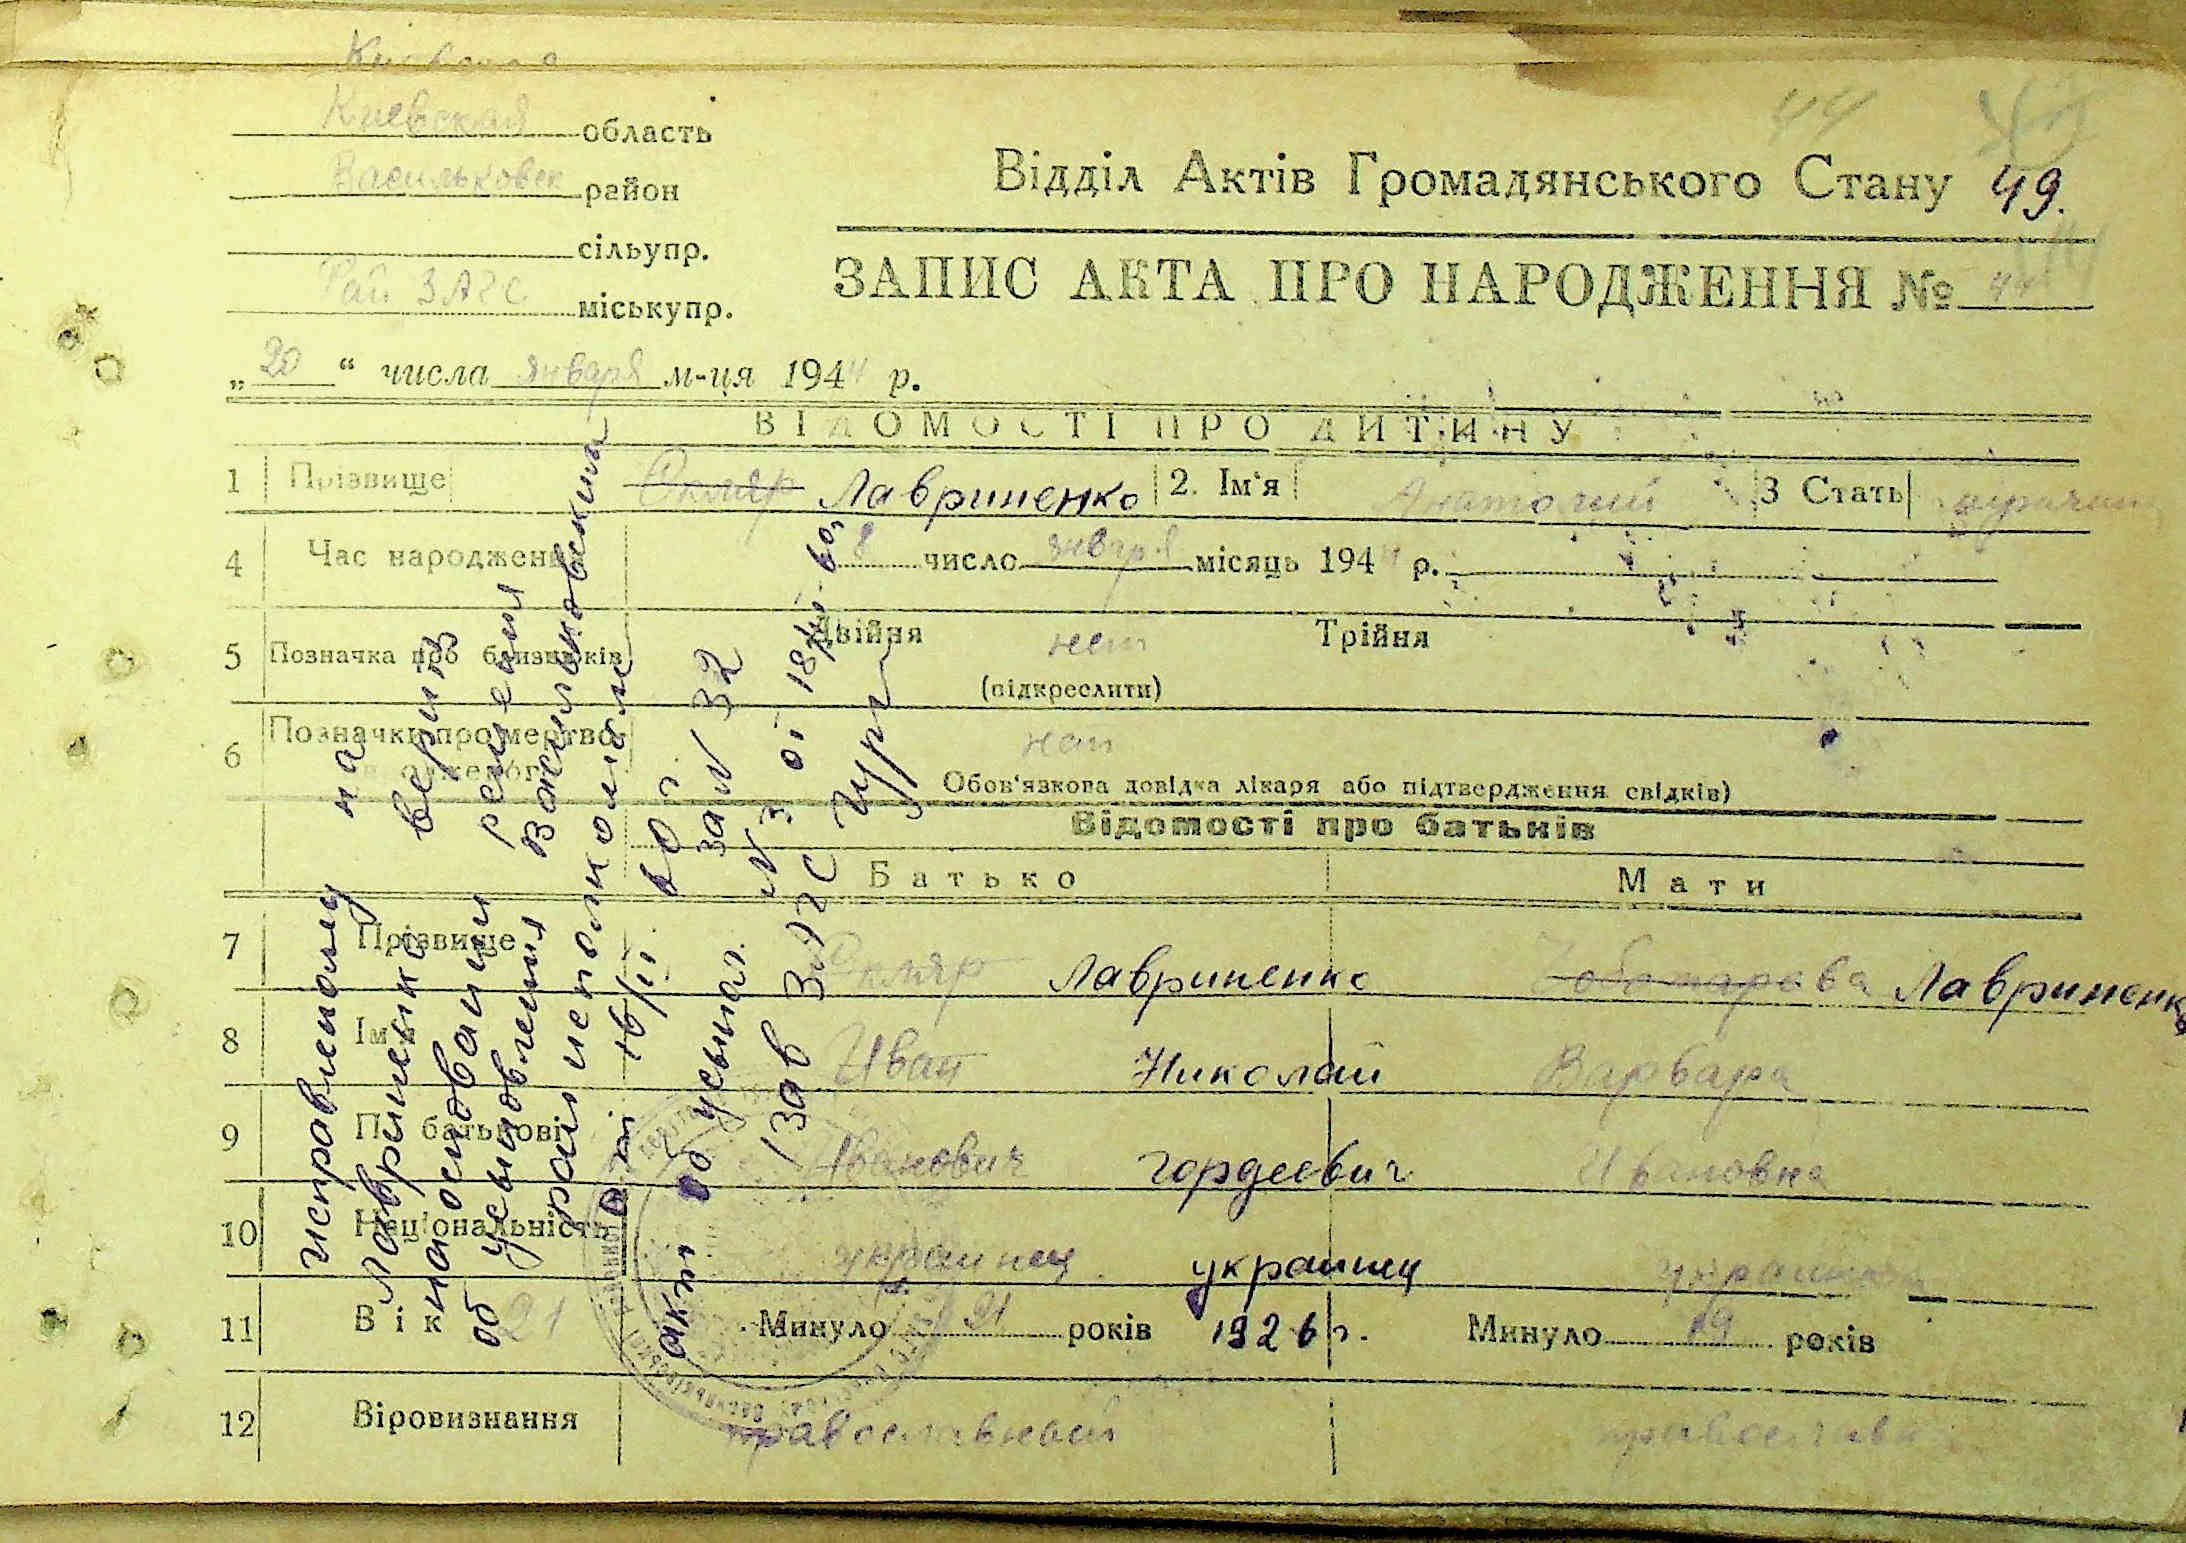 Киевская
Киевская область
Васильковск район
сільупр.
Рай ЗАГС міськупр.
44
Відділ Актів Громадянського Стану 49.
ЗАПИС АКТА ПРО НАРОДЖЕННЯ № 44
„20“ числа января м-ця 1944 р.
ВІДОМОСТІ ПРО ДИТИНУ
1 Прізвище Скляр Лавриненко 2. Ім'я Анатолий 3 Стать
4 Час народжен 8 число января місяць 1944 р.
5 Позначка про близнюків Двійня нет Трійня
(підкреслити)
6 Позначки про мертво
нет
Обов'язкова довідка лікаря або підтвердження свідків)
Відомості про батьків
Батько Мати
7 Прізвище Скляр Лавриненко Лавриненко
8 Ім'я Иван Николай Варвара
9 По батькові Иванович Гордеевич Ивановна
10 Національність украинец украинец украинка
11 Вік 21 Минуло 21 років 1926 г. Минуло 19 років
12 Віровизнання православный православн
исправленому на
Лавриненко верить
на основании решения
об усыновлении Васильковским
райисполкома
от 16/II 60 г.
акт об усынов. за N 32
N 3 от 18/II-60,
Зав ЗАГС